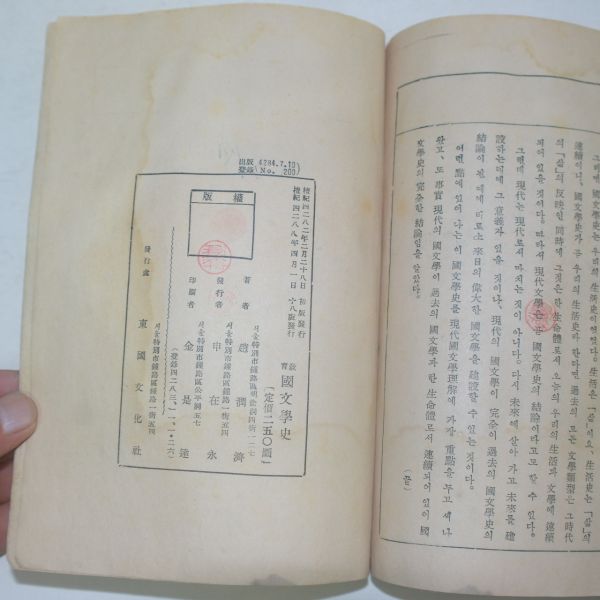 그러면 國文學史는 우리의 生活史이었다. 「삶」의
連續이니, 國文學史가 곧 우리의 生活史라 한다면 過去의 모든 文學類型은 그 時代
의 「삶」의 反映인 同時에 그것은 한 生命體로서 오늘의 우리의 生活과 文學에 連續
되어 있을 것이다. 따라서 現代文學은 곧 國文學史의 結論이라고도 할 수 있다.
그런데 現代는 現代로서 마치는 것이 아니다. 다시 未來에 살아 가고 未來를 建
設하는데에 그 意義가 있을 것이니, 現代의 國文學이 完全히 過去의 國文學史의
結論이 될 때에 비로소 來日의 偉大한 國文學을 建設할 수 있는 것이다.
어떤 點에 있어 나는 이 國文學史를 現代國文學理解에 가장 重點을 두고 써 나
왔고, 또 事實 現代의 國文學이 過去의 國文學과 한 生命體로서 連續되어 있어 國
文學史의 完全한 結論임을 알았다.
(끝)
出版 4284.7.10
登錄(No. 200)
版權
檀紀四二八二年二月二十八日 初版發行
檀紀四二八八年四月一日 十八版發行
敎育 國文學史
【定價二五〇圜】
서울特別市鍾路區明倫洞四街一二七
著者 趙潤濟
서울特別市鍾路區鍾路一街五四
發行者 申在永
서울特別市鍾路區公平洞五七
印刷者 金是達
(登錄四二八三、一一、二六)
서울特別市鍾路區鍾路一街五四
發行處 東國文化社